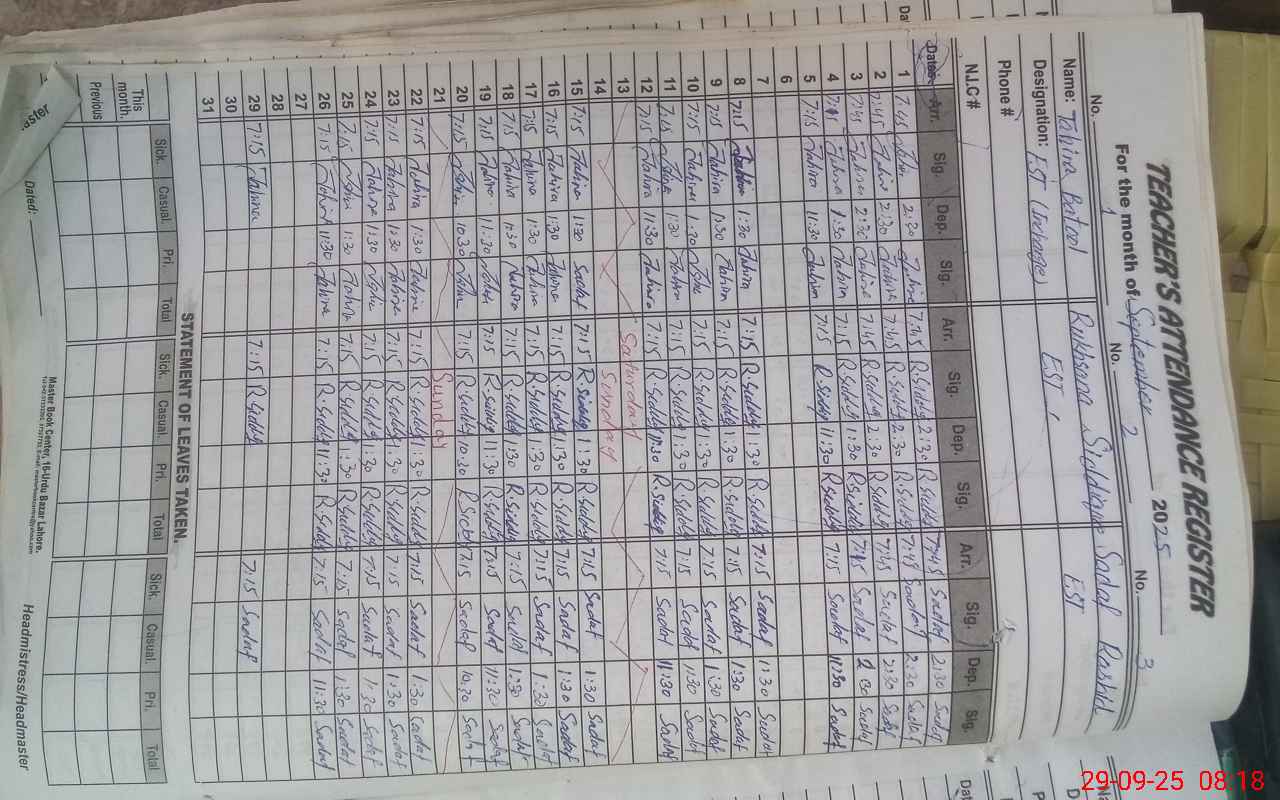 TEACHER'S ATTENDANCE REGISTER
For the month of September 2025
No. 1 No. 2 No. 3
Name: Tahira Batool Rukhsana Siddiqa Sadaf Rashid
Designation: EST (Incharge) EST EST
Phone #
N.I.C #
Dates Arr. Sig. Dep. Sig. Arr. Sig. Dep. Sig. Arr. Sig. Dep. Sig.
1 7:45 2:30 7:45 R.Siddq 2:30 R.Siddq 7:45 Sadaf 2:30 Sadaf
2 7:45 Tahira 2:30 Tahira 7:45 R.Siddq 2:30 R.Siddq 7:45 Sadaf 2:30 Sadaf
3 7:45 Tahira 2:30 Tahira 7:45 R.Siddq 2:30 R.Siddq 7:45 Sadaf 2:30 Sadaf
4 7:15 Tahira 1:30 Tahira 7:15 R.Siddq 1:30 R.Siddq 7:15 Sadaf 1:30 Sadaf
5 7:15 Tahira 11:30 Tahira 7:15 R.Siddq 11:30 R.Siddq 7:15 Sadaf 11:30 Sadaf
6
7
8 7:15 Tahira 1:30 Tahira 7:15 R.Siddq 1:30 R.Siddq 7:15 Sadaf 1:30 Sadaf
9 7:15 Tahira 1:30 Tahira 7:15 R.Siddq 1:30 R.Siddq 7:15 Sadaf 1:30 Sadaf
10 7:15 Tahira 1:30 7:15 R.Siddq 1:30 R.Siddq 7:15 Sadaf 1:30 Sadaf
11 7:15 1:30 Tahira 7:15 R.Siddq 1:30 R.Siddq 7:15 Sadaf 1:30 Sadaf
12 7:15 Tahira 11:30 Tahira 7:15 R.Siddq 11:30 R.Siddq 7:15 Sadaf 11:30 Sadaf
13 Saturday
14 Sunday
15 7:15 Tahira 1:30 Sadaf 7:15 R.Siddq 1:30 R.Siddq 7:15 Sadaf 1:30 Sadaf
16 7:15 Tahira 1:30 Tahira 7:15 R.Siddq 1:30 R.Siddq 7:15 Sadaf 1:30 Sadaf
17 7:15 Tahira 1:30 Tahira 7:15 R.Siddq 1:30 R.Siddq 7:15 Sadaf 1:30 Sadaf
18 7:15 Tahira 1:30 Tahira 7:15 R.Siddq 1:30 R.Siddq 7:15 Sadaf 1:30 Sadaf
19 7:15 Tahira 11:30 7:15 R.Siddq 11:30 R.Siddq 7:15 Sadaf 11:30 Sadaf
20 7:15 10:30 7:15 R.Siddq 10:30 R.Siddq 7:15 Sadaf 10:30 Sadaf
21 Sunday
22 7:15 Tahira 1:30 Tahira 7:15 R.Siddq 1:30 R.Siddq 7:15 Sadaf 1:30 Sadaf
23 7:15 Tahira 1:30 Tahira 7:15 R.Siddq 1:30 R.Siddq 7:15 Sadaf 1:30 Sadaf
24 7:15 Tahira 1:30 7:15 R.Siddq 1:30 R.Siddq 7:15 Sadaf 1:30 Sadaf
25 7:15 1:30 Tahira 7:15 R.Siddq 1:30 R.Siddq 7:15 Sadaf 1:30 Sadaf
26 7:15 Tahira 11:30 Tahira 7:15 R.Siddq 11:30 R.Siddq 7:15 Sadaf 11:30 Sadaf
27
28
29 7:15 Tahira 7:15 R.Siddq 7:15 Sadaf
30
31
STATEMENT OF LEAVES TAKEN.
Sick. Casual. Pri. Total Sick. Casual. Pri. Total Sick. Casual. Pri. Total
This month.
Previous
Dated:
Headmistress/Headmaster
Master Book Center, 16-Urdu Bazar Lahore.
29-09-25 08:18